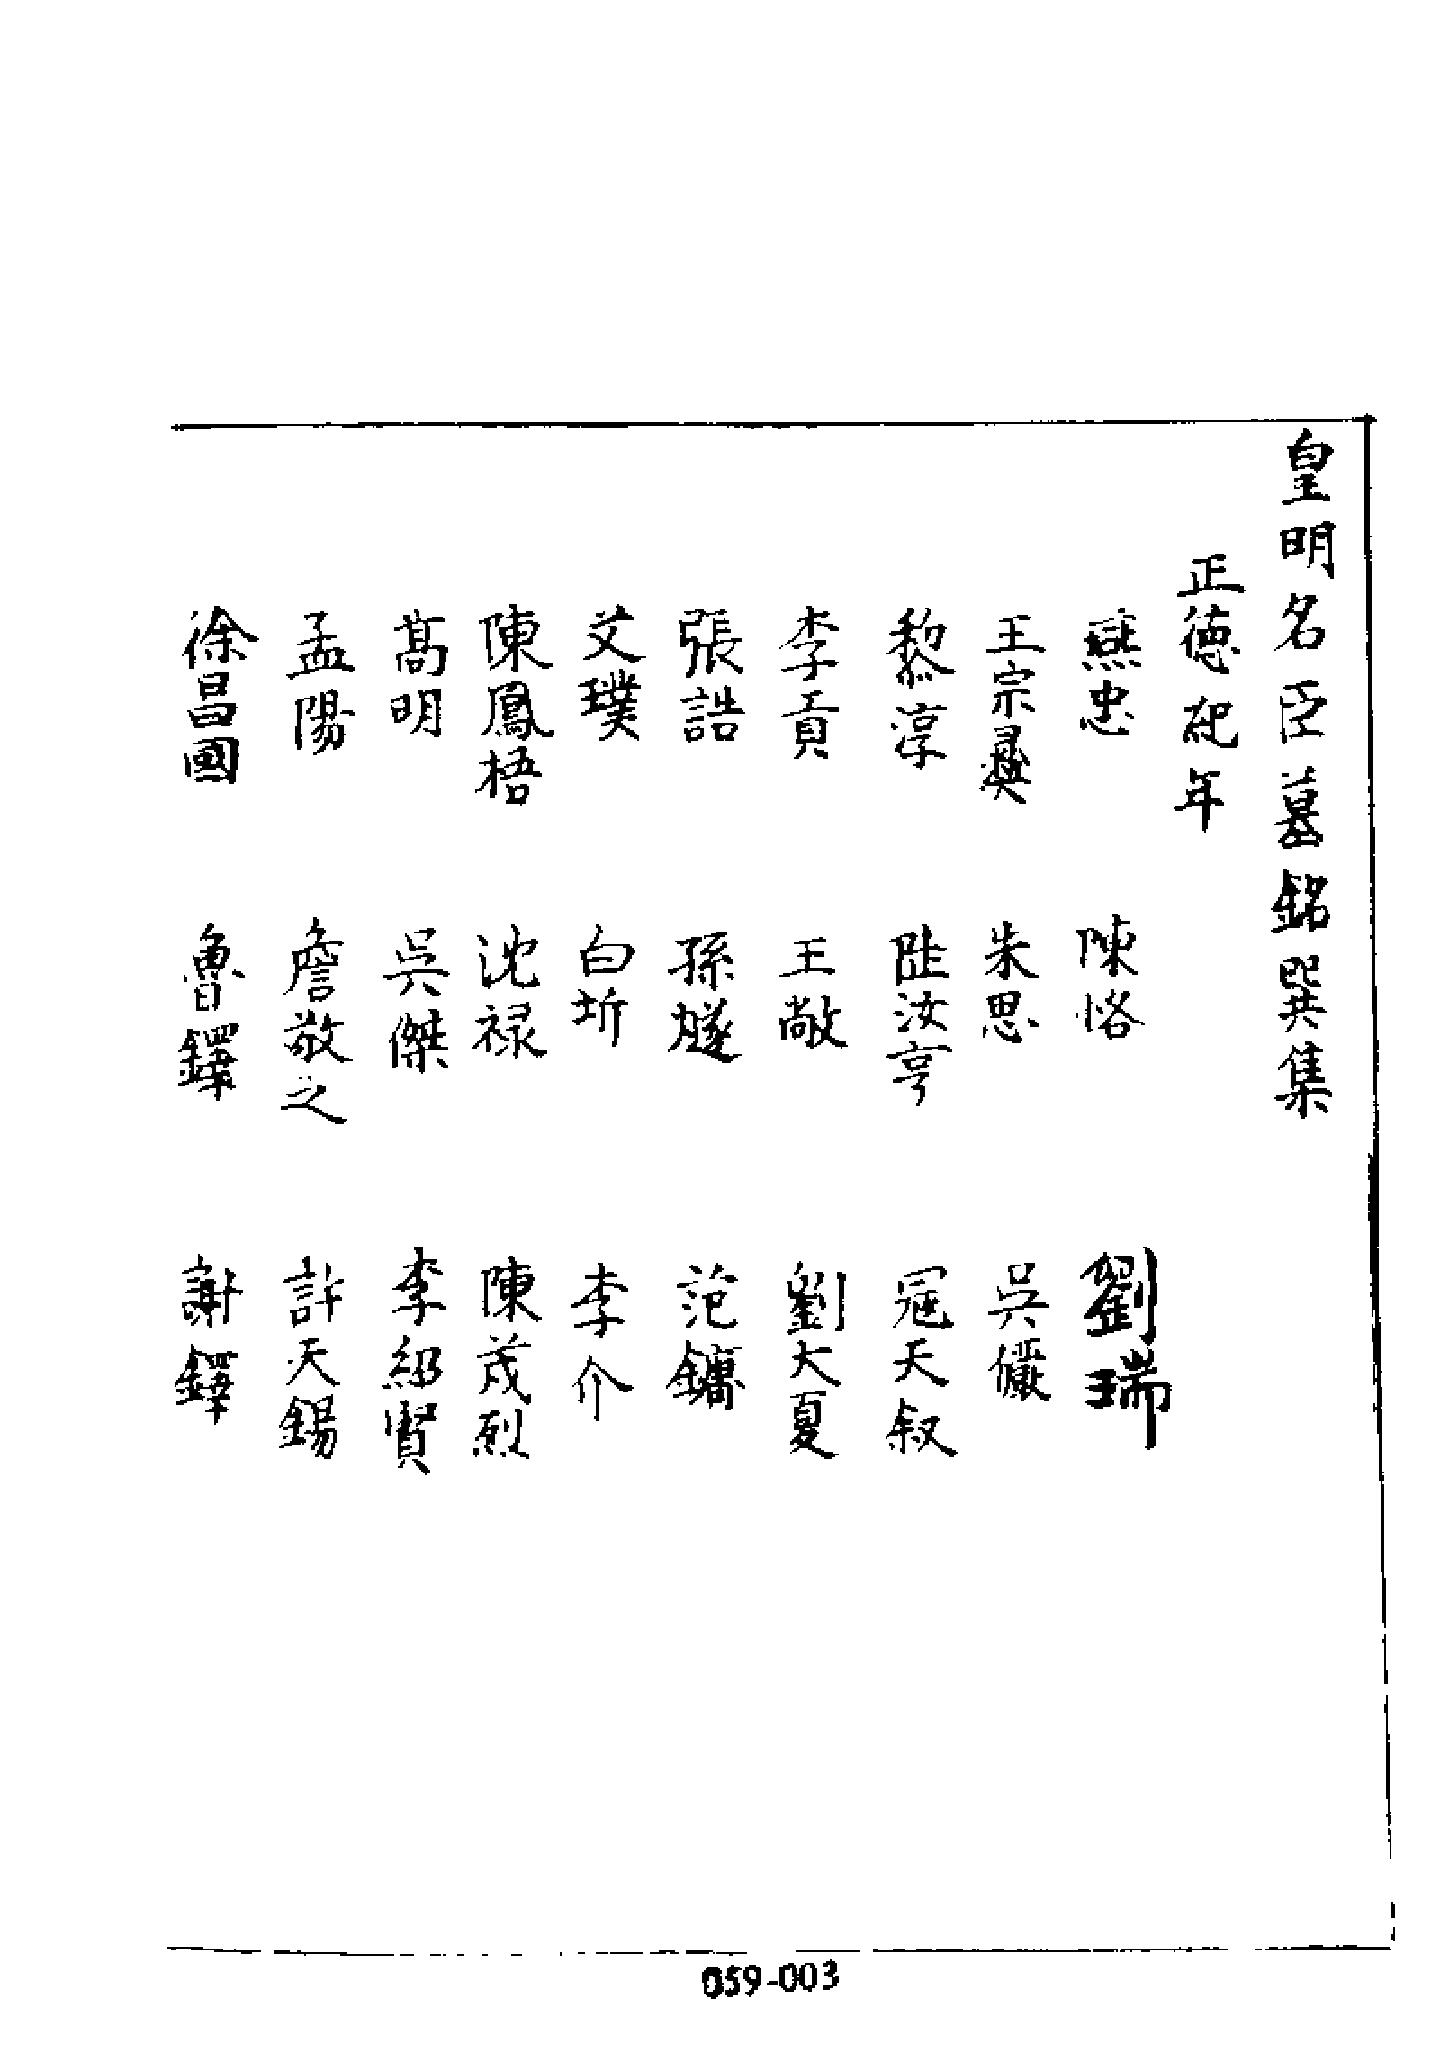 皇明名臣墓銘巽集
正德紀年
熊忠 陳恪 劉瑞
王宗彝 朱恩 吳儼
黎淳 陸汝亨 冦天叙
李貢 王敞 劉大夏
張誥 孫燧 范鏞
艾璞 白圻 李介
陳鳳梧 沈禄 陳茂烈
髙明 吳傑 李紹賢
孟陽 詹敬之 許天錫
徐昌國 魯鐸 謝鐸
059-003